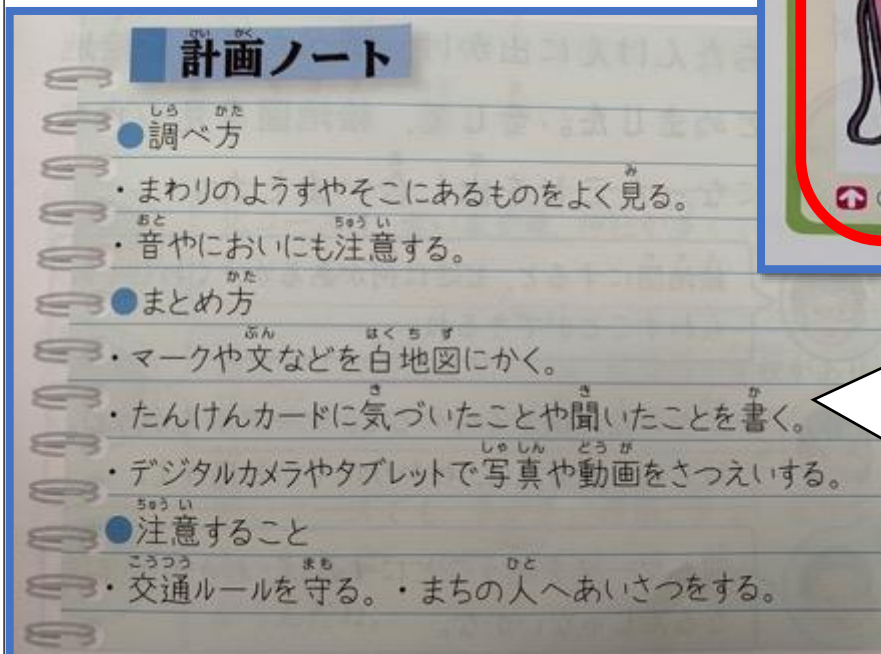 計画ノート
●調べ方
・まわりのようすやそこにあるものをよく見る。
・音やにおいにも注意する。
●まとめ方
・マークや文などを白地図にかく。
・たんけんカードに気づいたことや聞いたことを書く。
・デジタルカメラやタブレットで写真や動画をさつえいする。
●注意すること
・交通ルールを守る。・まちの人へあいさつをする。